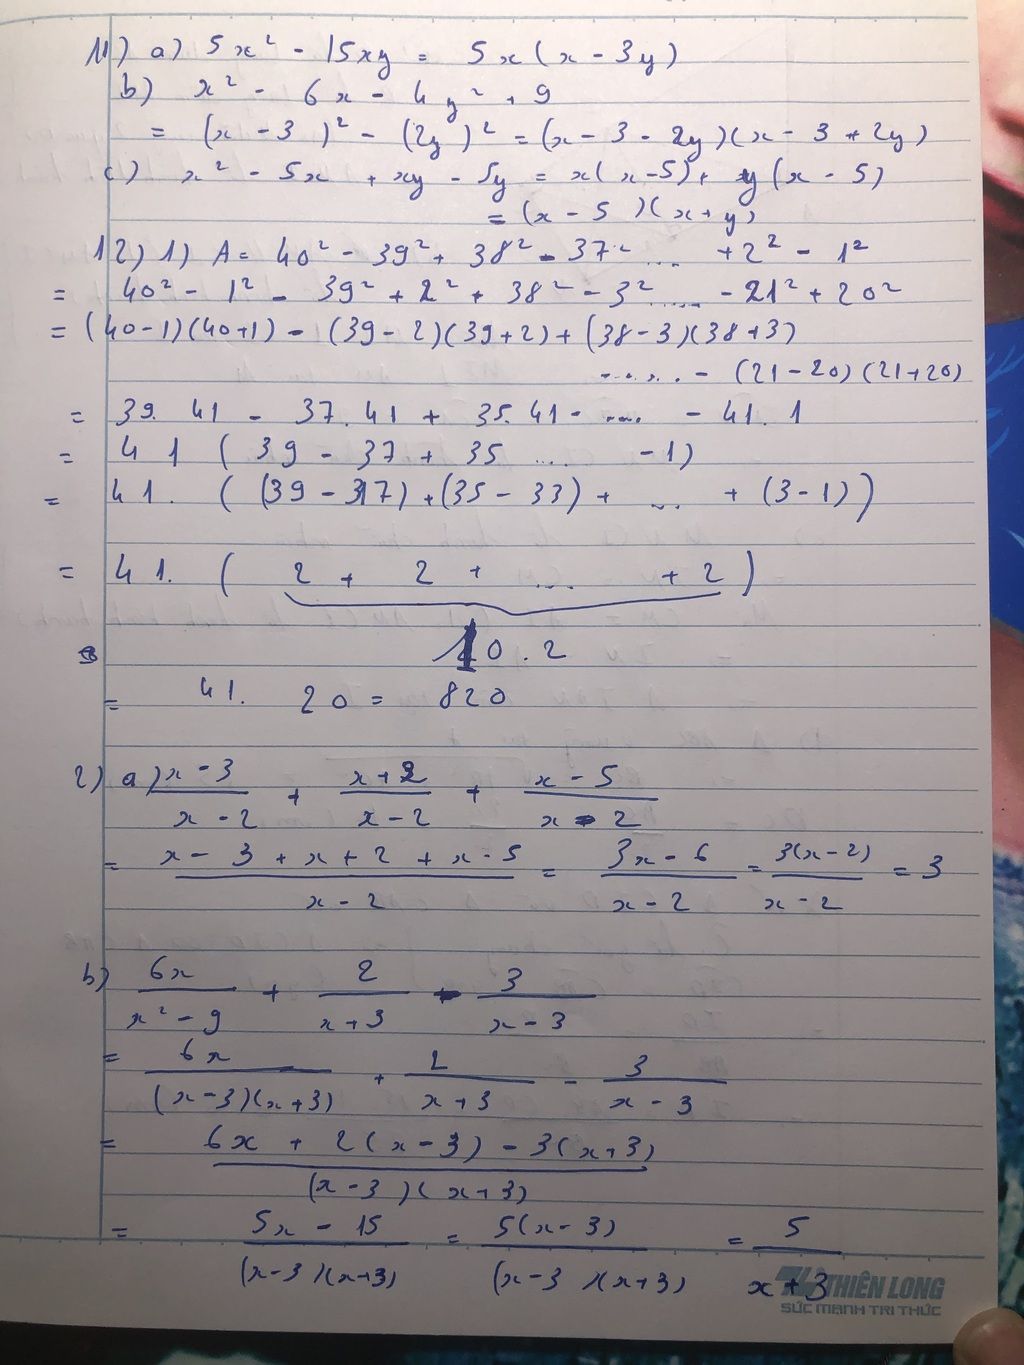 11) a) 5x² - 15xy = 5x(x - 3y)
b) x² - 6x - 4y² + 9
= (x - 3)² - (2y)² = (x - 3 - 2y)(x - 3 + 2y)
c) x² - 5x + xy - 5y = x(x-5) + y(x - 5)
= (x - 5)(x + y)
12) 1) A = 40² - 39² + 38² - 37² .... + 2² - 1²
= 40² - 1² - 39² + 2² + 38² - 3² ..... - 21² + 20²
= (40-1)(40+1) - (39-2)(39+2) + (38-3)(38+3)
...... - (21-20)(21+20)
= 39.41 - 37.41 + 35.41 - .... - 41.1
= 41 (39 - 37 + 35 .... -1)
= 41. ((39 - 37) + (35 - 33) + ... + (3-1))
= 41. (2 + 2 + ... + 2)
10.2
= 41. 20 = 820
2) a) \frac{x-3}{x-2} + \frac{x+2}{x-2} + \frac{x-5}{x-2}
= \frac{x-3+x+2+x-5}{x-2} = \frac{3x-6}{x-2} = \frac{3(x-2)}{x-2} = 3
b) \frac{6x}{x²-9} + \frac{2}{x+3} - \frac{3}{x-3}
= \frac{6x}{(x-3)(x+3)} + \frac{2}{x+3} - \frac{3}{x-3}
= \frac{6x + 2(x-3) - 3(x+3)}{(x-3)(x+3)}
= \frac{5x-15}{(x-3)(x+3)} = \frac{5(x-3)}{(x-3)(x+3)} = \frac{5}{x+3}
THIÊN LONG
SỨC MẠNH TRI THỨC